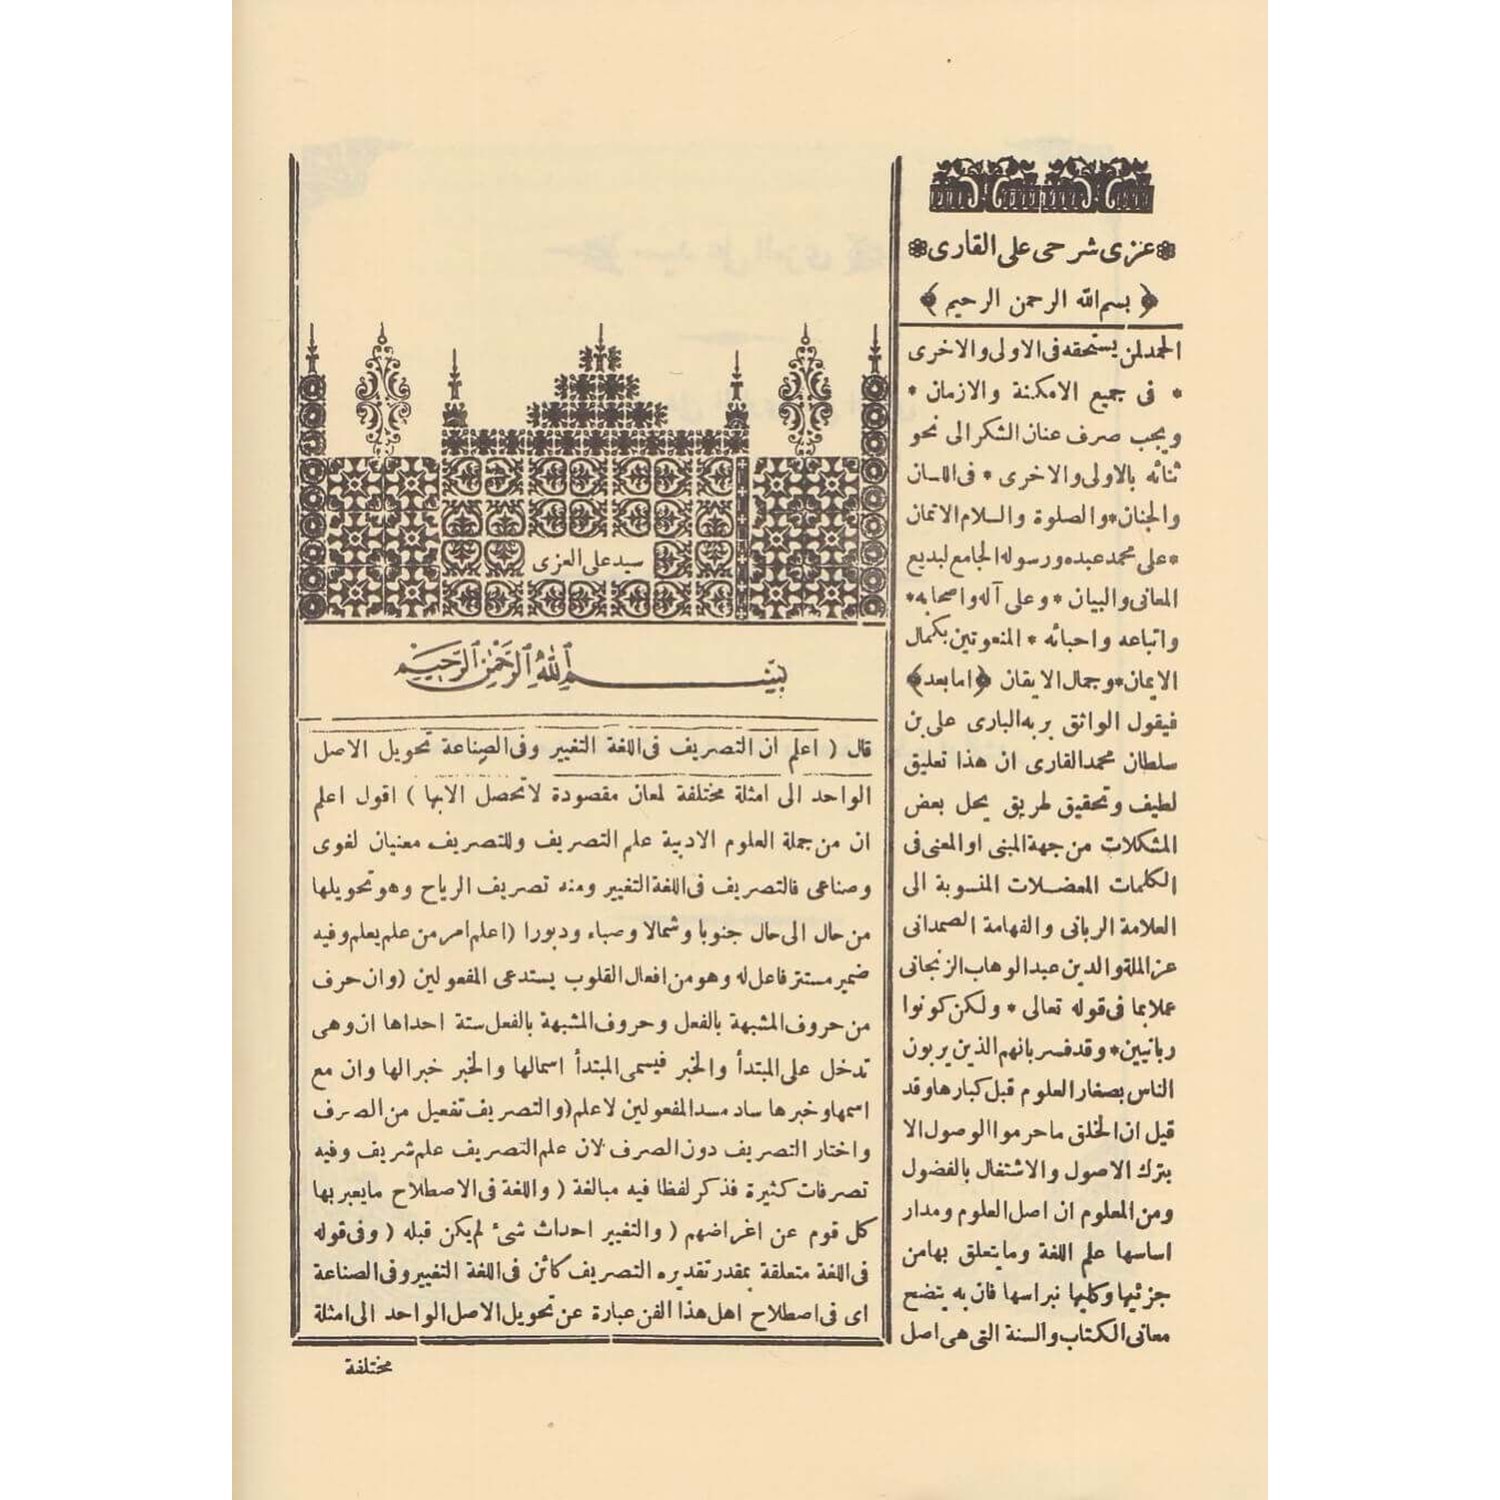 عزى شرحى على القارى
﴿ بسم الله الرحمن الرحيم ﴾
الحمد لمن يستحقه فى الاولى والاخرى
* فى جميع الامكنة والازمان *
ويجب صرف عنان الشكر الى نحو
ثنائه بالاولى والاخرى * فى اللسان
والجنان * والصلوة والسلام الاتمان
* على محمد عبده ورسوله الجامع لبديع
المعانى والبيان * وعلى آله واصحابه *
واتباعه واحبائه * المنعوتين بكمال
الايمان * وجمال الايقان ﴿ اما بعد ﴾
فيقول الواثق بربه البارى على بن
سلطان محمد القارى ان هذا تعليق
لطيف وتحقيق طريق يحل بعض
المشكلات من جهة المبنى او المعنى فى
الكلمات المعضلات المنسوبة الى
العلامة الربانى والفهامة الصمدانى
عز الملة والدين عبد الوهاب الزنجانى
عملا بما فى قوله تعالى * ولكن كونوا
ربانيين * وقد فسر بانهم الذين يربون
الناس بصغار العلوم قبل كبارها وقد
قيل ان الخلق ما حرموا الوصول الا
بترك الاصول والاشتغال بالفضول
ومن المعلوم ان اصل العلوم ومدار
اساسها علم اللغة وما يتعلق بها من
جزئيها وكليها نبراسها فان به يتضح
معانى الكتاب والسنة التى هى اصل
سيد على العزى
بسم الله الرحمن الرحيم
قال ( اعلم ان التصريف فى اللغة التغيير وفى الصناعة تحويل الاصل
الواحد الى امثلة مختلفة لمعان مقصودة لا تحصل الا بها ) اقول اعلم
ان من جملة العلوم الادبية علم التصريف وللتصريف معنيان لغوى
وصناعى فالتصريف فى اللغة التغيير ومنه تصريف الرياح وهو تحويلها
من حال الى حال جنوبا وشمالا وصباء ودبورا (اعلم امر من علم يعلم وفيه
ضمير مستتر فاعل له وهو من افعال القلوب يستدعى المفعولين (وان حرف
من حروف المشبهة بالفعل وحروف المشبهة بالفعل ستة احداها ان وهى
تدخل على المبتدأ والخبر فيسمى المبتدأ اسمالها والخبر خبرالها وان مع
اسمها وخبرها ساد مسد المفعولين لاعلم (والتصريف تفعيل من الصرف
واختار التصريف دون الصرف لان علم التصريف علم شريف وفيه
تصرفات كثيرة فذكر لفظا فيه مبالغة ( واللغة فى الاصطلاح ما يعبر بها
كل قوم عن اغراضهم ( والتغيير احداث شئ لم يكن قبله ( وفى قوله
فى اللغة متعلقة بمقدر تقديره التصريف كائن فى اللغة التغيير وفى الصناعة
اى فى اصطلاح اهل هذا الفن عبارة عن تحويل الاصل الواحد الى امثلة
مختلفة